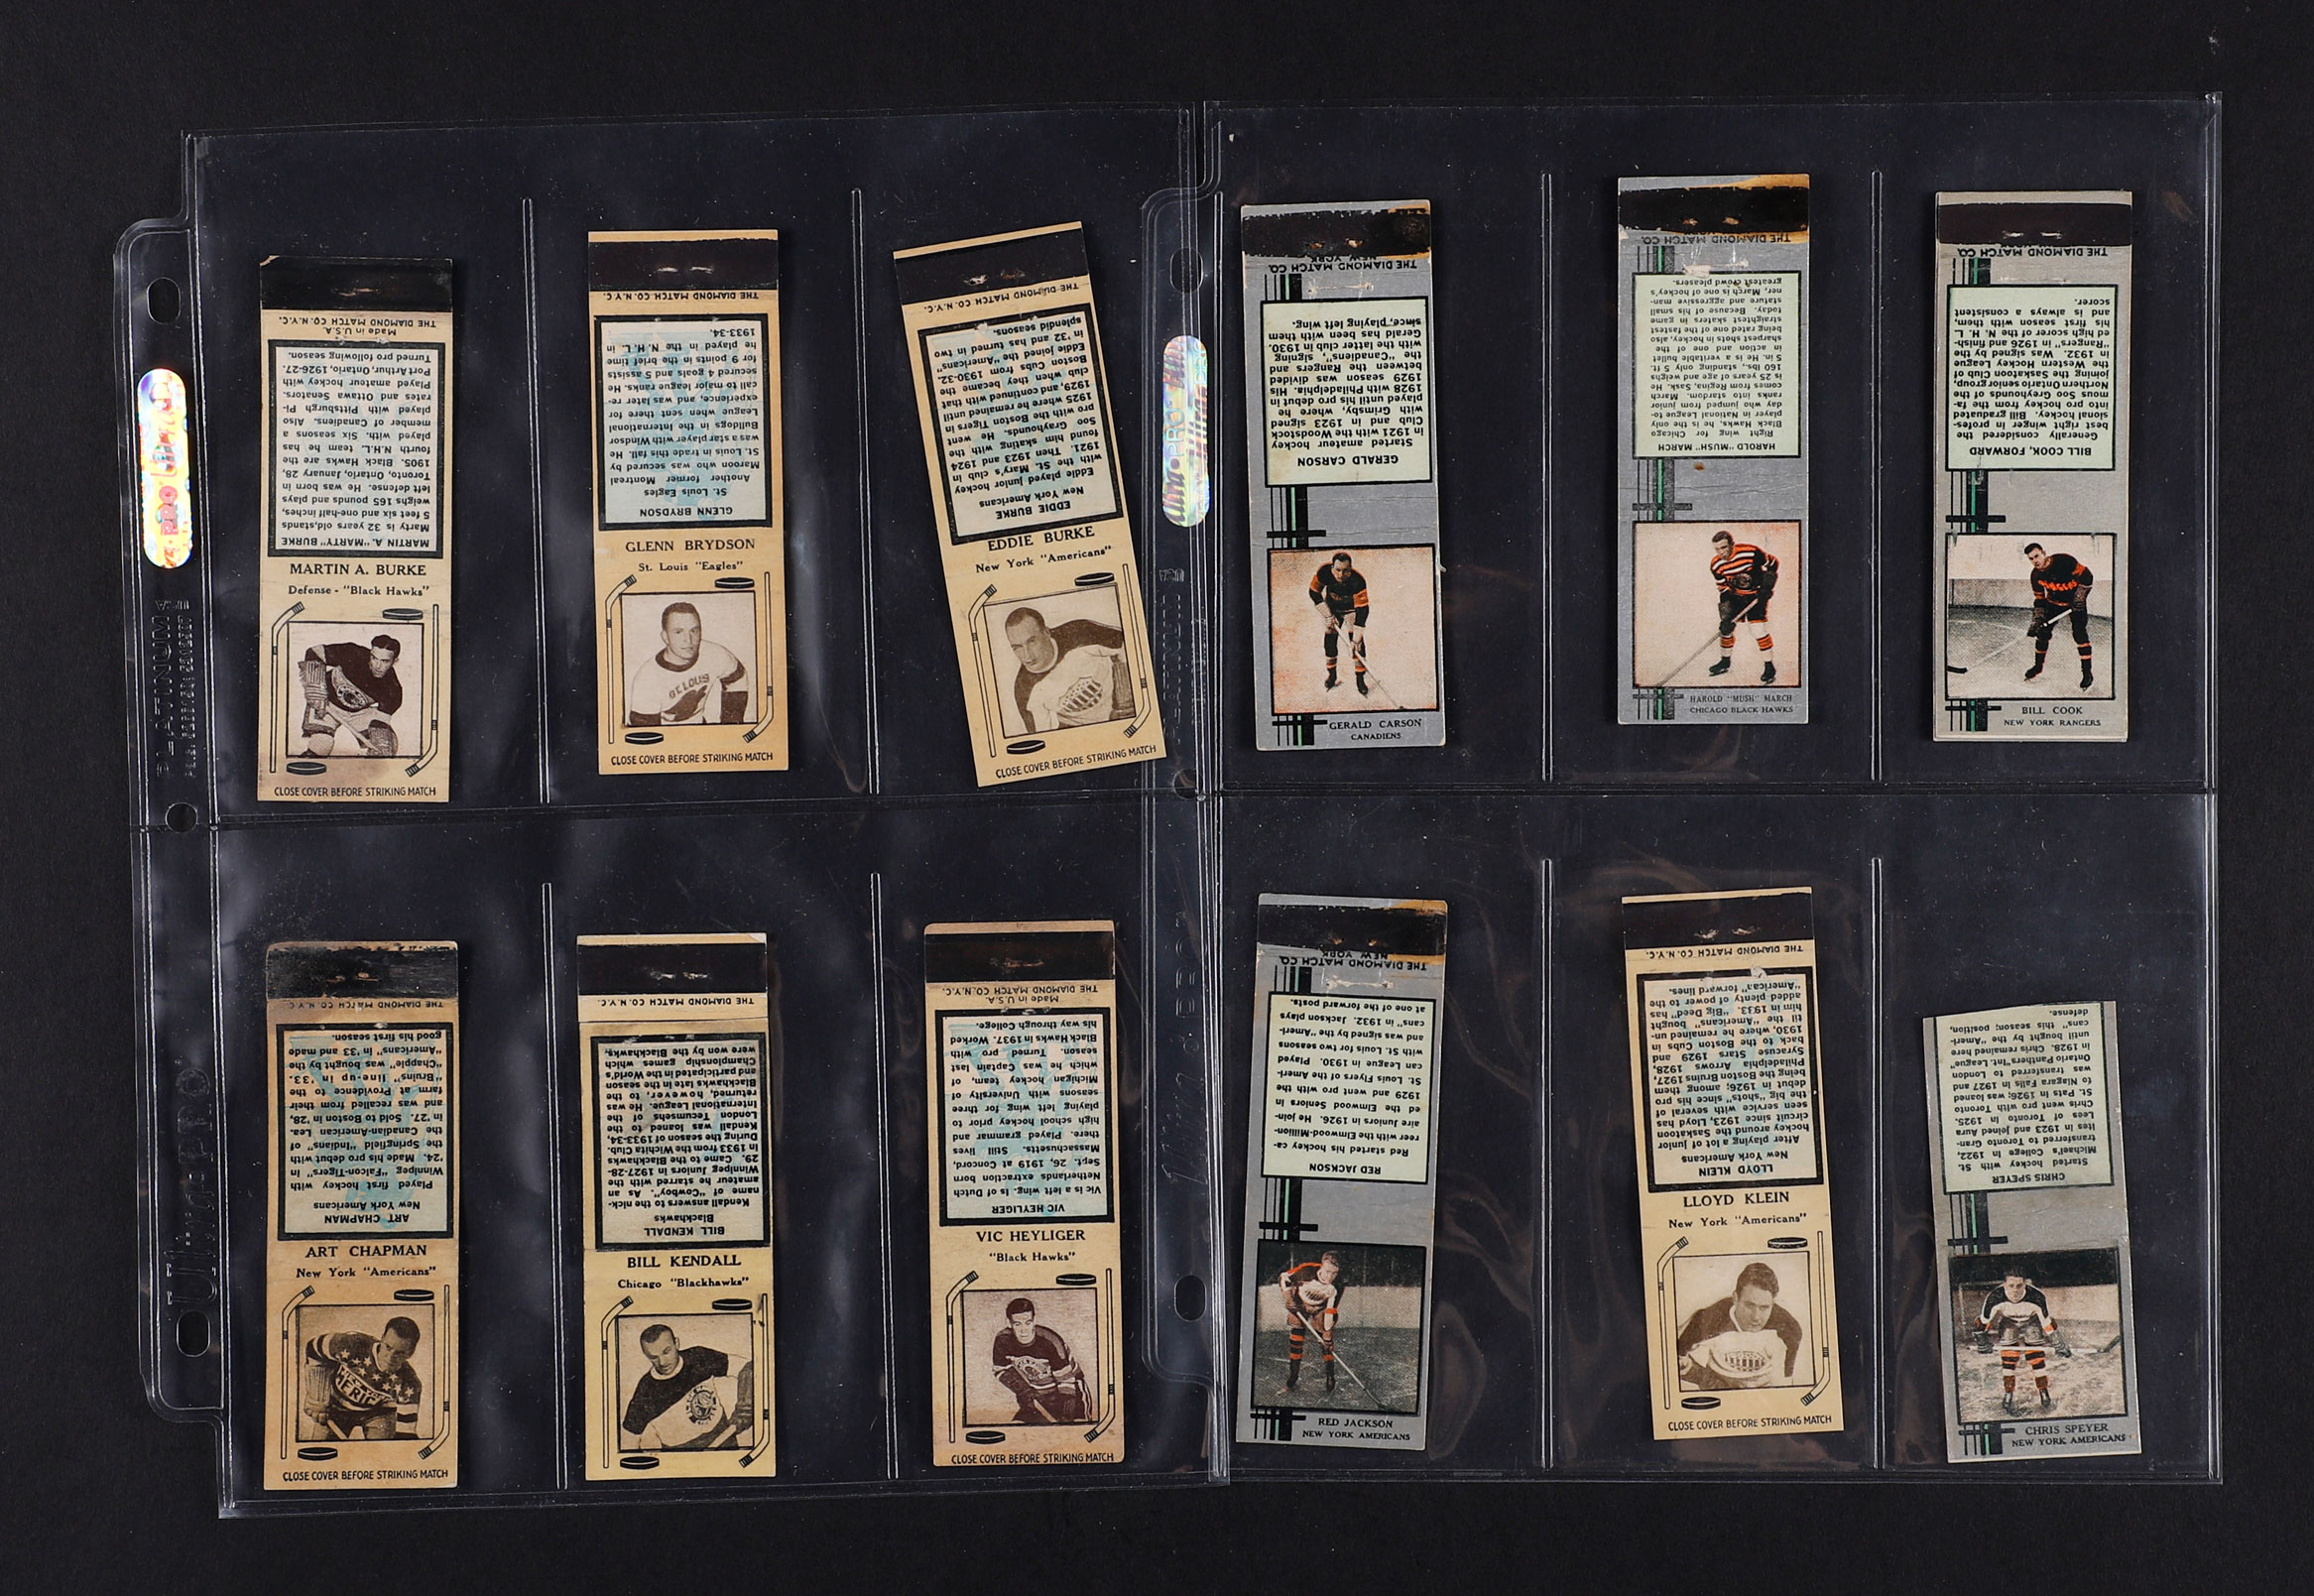 THE DIAMOND MATCH CO. N.Y.C.
Made in U.S.A.
MARTIN A. "MARTY" BURKE
Marty is 32 years old, stands
5 feet six and one-half inches,
weighs 165 pounds and plays
left defense. He was born in
Toronto, Ontario, January 28,
1905. Black Hawks are the
fourth N.H.L. team he has
played with. Six seasons a
member of Canadiens. Also
played with Pittsburgh Pi-
rates and Ottawa Senators.
Played amateur hockey with
Port Arthur, Ontario, 1926-27.
Turned pro following season.
MARTIN A. BURKE
Defense - "Black Hawks"
CLOSE COVER BEFORE STRIKING MATCH
THE DIAMOND MATCH CO. N.Y.C.
GLENN BRYDSON
St. Louis Eagles
Another former Montreal
Maroon who was secured by
St. Louis in trade this fall. He
was a star player with Windsor
Bulldogs in the International
League when sent there for
experience, and was later re-
call to major league ranks. He
secured 4 goals and 5 assists
for 9 points in the brief time
he played in the N. H. L. in
1933-34.
GLENN BRYDSON
St. Louis "Eagles"
ST. LOUIS
CLOSE COVER BEFORE STRIKING MATCH
THE DIAMOND MATCH CO. N.Y.C.
EDDIE BURKE
New York Americans
Eddie played junior hockey
with the St. Mary's club in
1921. Then 1923 and 1924
found him skating with the
Soo Greyhounds. He went
pro with the Boston Tigers in
1925 where he remained until
1929, and continued with that
club when they became the
Boston Cubs from 1930-32.
Eddie joined the "Americans"
in '32 and has turned in two
splendid seasons.
EDDIE BURKE
New York "Americans"
CLOSE COVER BEFORE STRIKING MATCH
THE DIAMOND MATCH CO.
NEW YORK
GERALD CARSON
Started amateur hockey
in 1921 with the Woodstock
Club and in 1923 signed
with Grimsby, where he
played until his pro debut in
1928 with Philadelphia. His
1929 season was divided
between the Rangers and
the "Canadiens", signing
with the latter club in 1930.
Gerald has been with them
since, playing left wing.
GERALD CARSON
CANADIENS
THE DIAMOND MATCH CO.
HAROLD "MUSH" MARCH
Right wing for Chicago
Black Hawks, he is the only
player in National League to-
day who jumped from junior
ranks into stardom. March
comes from Regina, Sask. He
is 25 years of age and weighs
160 lbs., standing only 5 ft.
5 in. He is a veritable bullet
in action and one of the
sharpest shots in hockey, also
being rated one of the fastest
straightest skaters in game
today. Because of his small
stature and aggressive man-
ner, March is one of hockey's
greatest crowd pleasers.
HAROLD "MUSH" MARCH
CHICAGO BLACK HAWKS
THE DIAMOND MATCH CO.
BILL COOK, FORWARD
Generally considered the
best right winger in profes-
sional hockey. Bill graduated
into pro hockey from the fa-
mous Soo Greyhounds of the
Northern Ontario senior group,
joining the Saskatoon Club of
the Western Hockey League
in 1932. Was signed by the
"Rangers" in 1926 and finish-
ed high scorer of the N. H. L.
his first season with them,
and is always a consistent
scorer.
BILL COOK
NEW YORK RANGERS
THE DIAMOND MATCH CO. N.Y.C
ART CHAPMAN
New York Americans
Played first hockey with
Winnipeg "Falcon-Tigers" in
'24. Made his pro debut with
the Springfield "Indians" of
the Canadian-American Lea.
in '27. Sold to Boston in '28,
and was recalled from their
farm at Providence to the
"Bruins" line-up in '33.
"Chappie" was bought by the
"Americans" in '33 and made
good his first season.
ART CHAPMAN
New York "Americans"
CLOSE COVER BEFORE STRIKING MATCH
THE DIAMOND MATCH CO. N.Y.C.
BILL KENDALL
Blackhawks
Kendall answers to the nick-
name of "Cowboy". As an
amateur he starred with the
Winnipeg Juniors in 1927-28-
29. Came to the Blackhawks
in 1933 from the Wichita Club.
During the season of 1933-34,
Kendall was loaned to the
London Tecumsehs of the
International League. He was
returned, however, to the
Blackhawks late in the season
and participated in the World's
Championship games which
were won by the Blackhawks.
BILL KENDALL
Chicago "Blackhawks"
THE DIAMOND MATCH CO. N.Y.C.
Made in U.S.A.
VIC HEYLIGER
Vic is a left wing. Is of Dutch
Netherlands extraction born
Sept. 26, 1919 at Concord,
Massachusetts. Still lives
there. Played grammar and
high school hockey prior to
playing left wing for three
seasons with University of
Michigan hockey team, of
which he was Captain last
season. Turned pro with
Black Hawks in 1937. Worked
his way through College.
VIC HEYLIGER
"Black Hawks"
CLOSE COVER BEFORE STRIKING MATCH
THE DIAMOND MATCH CO.
NEW YORK
RED JACKSON
Red started his hockey ca-
reer with the Elmwood-Million-
aire Juniors in 1926. He join-
ed the Elmwood Seniors in
1929 and went pro with the
St. Louis Flyers of the Ameri-
can League in 1930. Played
with St. Louis for two seasons
and was signed by the "Ameri-
cans" in 1932. Jackson plays
at one of the forward posts.
RED JACKSON
NEW YORK AMERICANS
THE DIAMOND MATCH CO. N.Y.C.
LLOYD KLEIN
New York Americans
After playing a lot of junior
hockey around the Saskatoon
circuit since 1923, Lloyd has
seen service with several of
the big "shots" since his pro
debut in 1926; among them
being the Boston Bruins 1927,
Philadelphia Arrows 1928,
Syracuse Stars 1929 and
back to the Boston Cubs in
1930, where he remained un-
til the "Americans" bought
him in 1933. "Big Deed" has
added plenty of power to the
"American" forward lines.
LLOYD KLEIN
New York "Americans"
CLOSE COVER BEFORE STRIKING MATCH
CHRIS SPEYER
Started hockey with St.
Michael's College in 1922,
transferred to Toronto Gran-
ites in 1923 and joined Aura
Lees of Toronto in 1925.
Chris went pro with Toronto
St. Pats in 1926; was loaned
to Niagara Falls in 1927 and
was transferred to London
Ontario Panthers "Int. League"
in 1928. Chris remained here
until bought by the "Ameri-
cans" this season; position,
defense.
CHRIS SPEYER
NEW YORK AMERICANS
PLATINUM
Ultra PRO